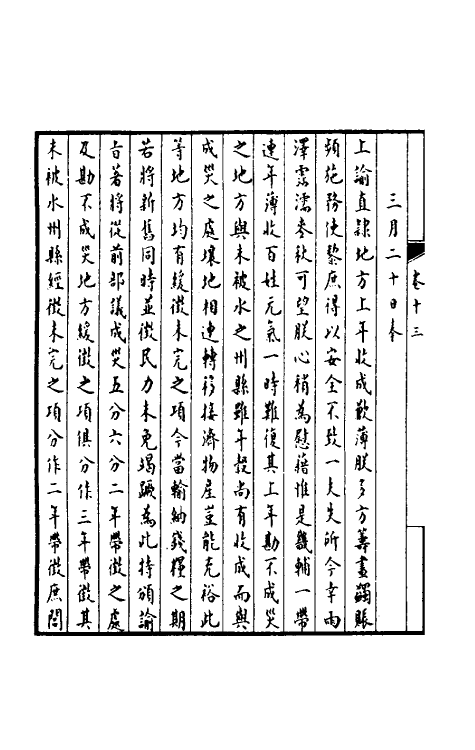 卷十三
三月二十日奉
上諭直隸地方上年收成歉薄朕多方籌畫蠲賑
頻施務使黎庶得以安全不致一夫失所今幸雨
澤霑濡麥秋可望朕心稍為慰藉惟是畿輔一帶
連年薄收百姓元氣一時難復其上年勘不成災
之地方與未被水之州縣雖年穀尚有收成而與
成災之處壤地相連轉移接濟物產豈能充裕此
等地方均有緩徵未完之項今當輸納錢糧之期
若將新舊同時並徵民力未免竭蹶為此特頒諭
旨著將從前部議成災五分六分二年帶徵之處
及勘不成災地方緩徵之項俱分作三年帶徵其
未被水州縣經徵未完之項分作二年帶徵庶閭